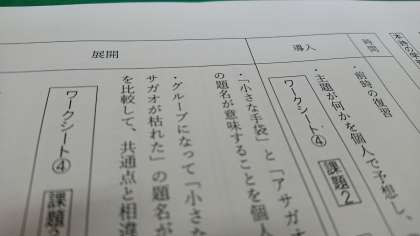 時間
導入
・前時の復習
・主題が何かを個人で予想し、
ワークシート④
課題2
展開
・「小さな手袋」と「アサガオ
の題名が意味することを個人
・グループになって「小さな
サガオが枯れた」の題名が
を比較して、共通点と相違
ワークシート④
課題